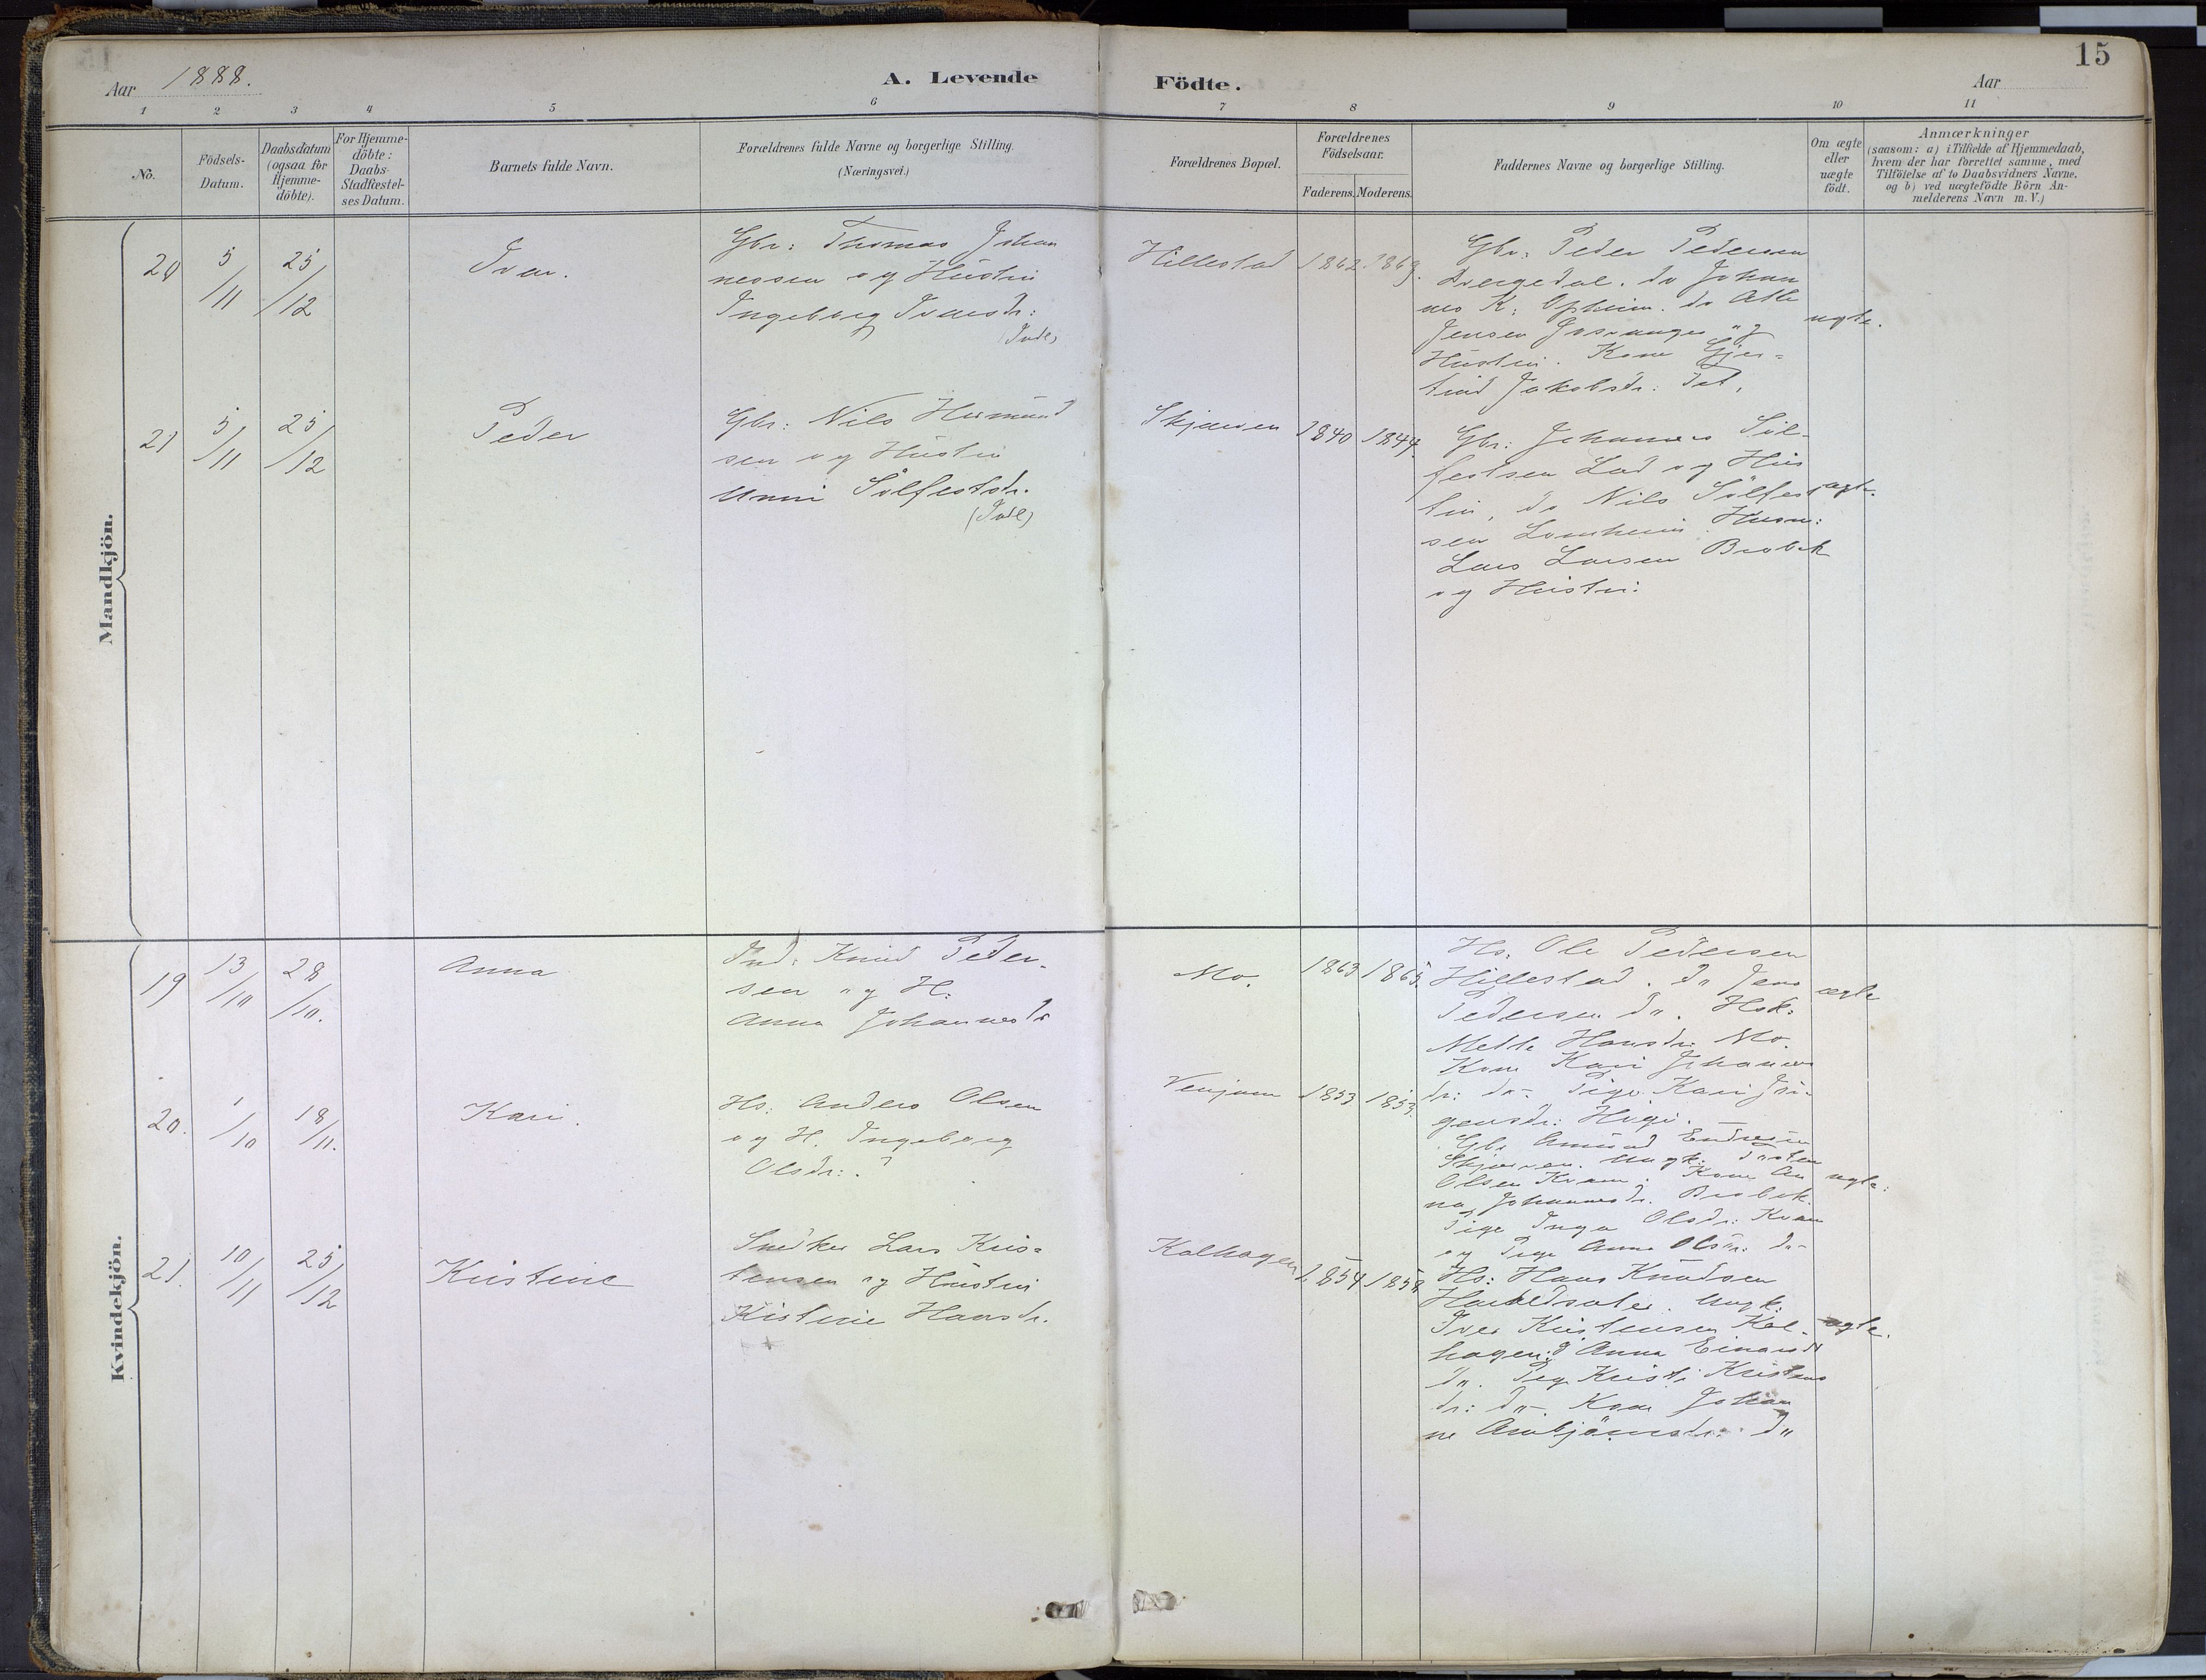 15
Aar 1888.
A. Levende
Födte.
Aar
1 2 3 4 5 6 7 8 9 10 11
No.
Födsels-
Datum.
Daabsdatum
(ogsaa for
Hjemme-
döbte).
For Hjemme-
döbte:
Daabs-
Stadfæstel-
ses Datum.
Barnets fulde Navn.
Forældrenes fulde Navne og borgerlige Stilling.
(Næringsvei.)
Forældrenes Bopæl.
Forældrenes
Födselsaar.
Faderens. Moderens.
Faddernes Navne og borgerlige Stilling.
Om ægte
eller
uægte
födt.
Anmærkninger
(saasom: a) i Tilfælde af Hjemmedaab,
hvem der har forrettet samme, med
Tilföielse af to Daabsvidners Navne,
og b) ved uægtefödte Börn An-
melderens Navn m. V.)
Mandkjön.
20 5/11 25/12
Ivar.
Gbr: Thomas Johan
nessen og Hustru
Ingeborg Ivarsdr:
Hillestad
1862. 1869.
Gbr: Peder Pedersen
Dvergedal. do Johan
nes K: Opheim. do Atle
Jensen og
Hustru. Kone Gjer-
trud Jakobsdr.
ægte.
21 5/11 25/12
Peder
Gbr: Nils Hermund
sen og Hustru
Unni Sølfestsdr.
Skjerven
1840 1844.
Gbr: Johannes Søl-
festsen Lad og Hus
tru, do Nils Sølfest
sen Lomheim. Husm:
Lars Larsen Brobek
og Hustru:
ægte.
Kvindekjön.
19 13/10 28/10.
Anna
Ind: Knud Peder-
sen og H:
Anna Johannesdr
Mo.
1863 1865.
Hs: Ole Pedersen
Hillestad. do Jens
Pedersen do. Hsk:
Mette Hansdr: Mo.
Kone Kari Johannes
dr: do- Pige Kari Jör-
gensdr:
ægte
20. 1/10 18/11.
Kari.
Hs: Anders Olsen
og H. Ingeborg
Olsdr:.
Venjum
1853 1853.
Gbr Amund Endresen
Skjerven. Ungk:
Olsen Kvam. Kone An
na Johannesdr. Brobek.
Pige Inga Olsdr: Kvam
og Pige Anna Olsdr: do-
ægte:
21. 10/11 25/12
Kristine
Snedker Lars Kris-
tensen og Hustru
Kistine Hansdr.
Kolhagen
1854 1858
Hs: Hans Knudsen
Ungk:
Iver Kristensen Kol-
hagen. Anna Einarsdr
do. Pige Kristi Kristens
dr: do-. Kone Johan
ne Anbjørnsdr: do
ægte.